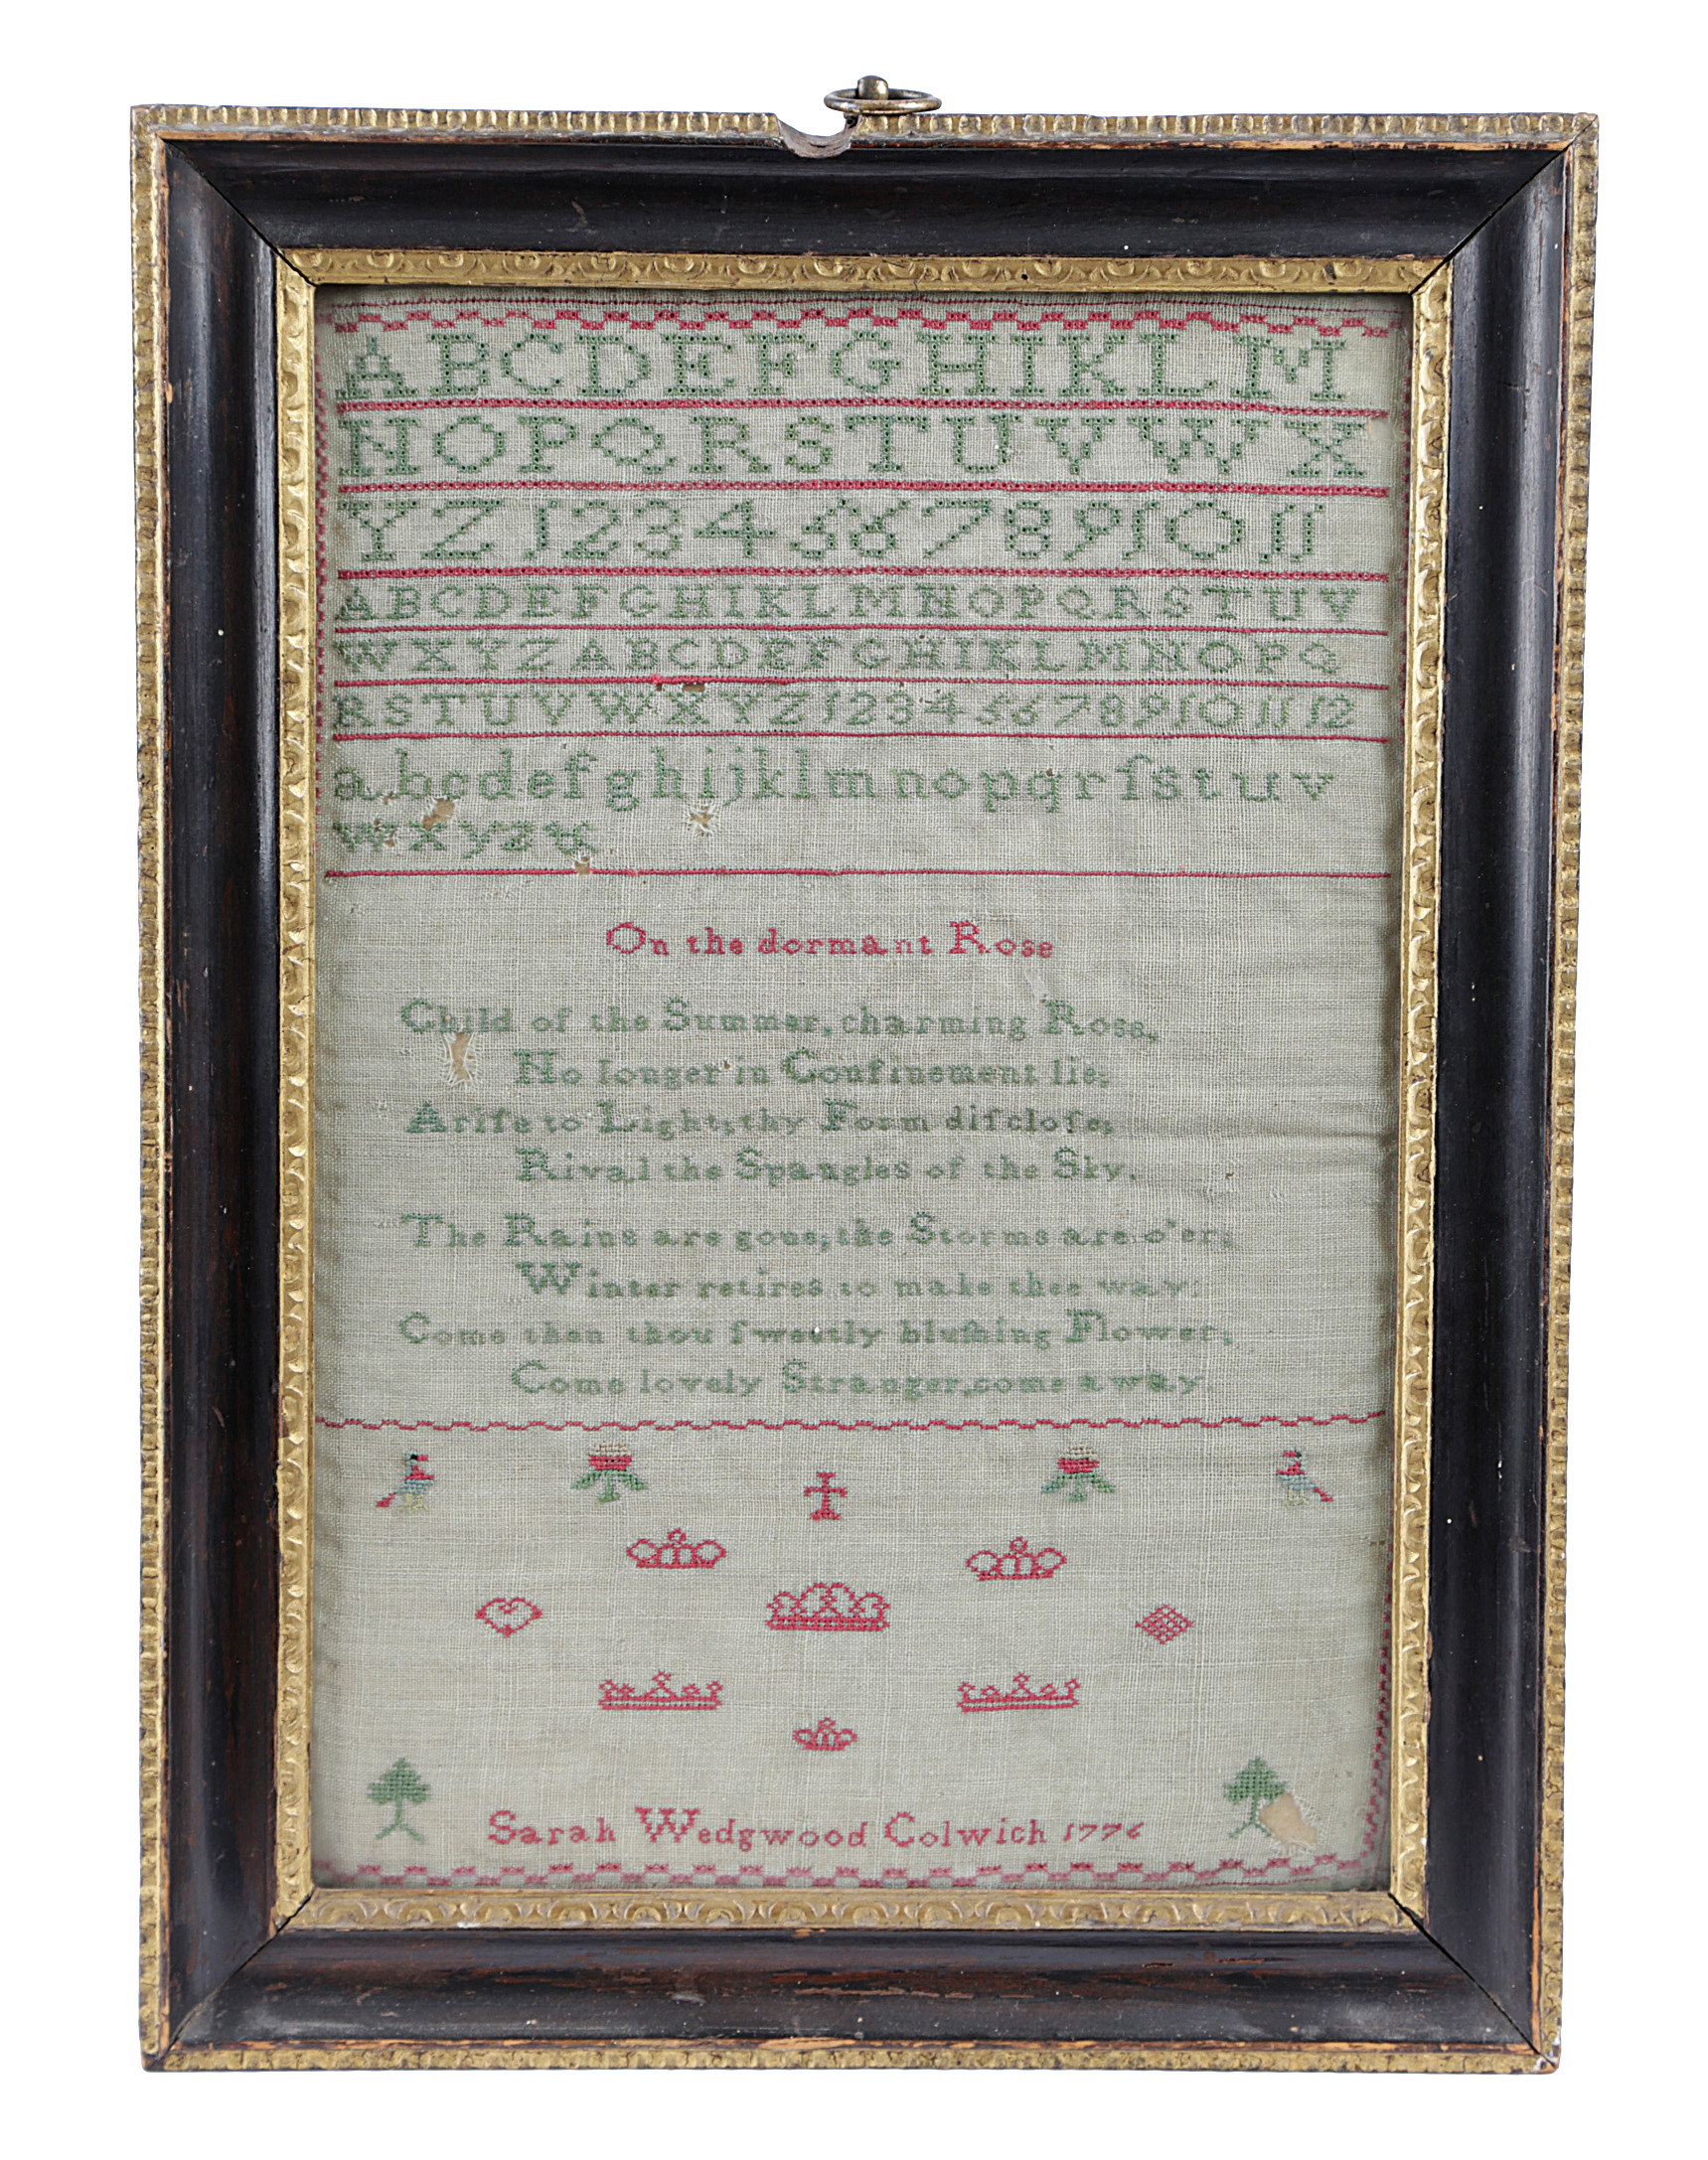 ABCDEFGHIKLM
NOPQRSTUVWX
YZ1234567891011
ABCDEFGHIKLMNOPQRSTUV
WXYZABCDEFGHIKLMNOPQ
RSTUVWXYZ123456789101112
abcdefghijklmnopqrſstuv
wxyz&
On the dormant Rose
Child of the Summer, charming Rose,
No longer in Confinement lie;
Ariſe to Light; thy Form diſcloſe;
Rival the Spangles of the Sky.
The Rains are gone; the Storms are o'er;
Winter retires to make thee way;
Come then thou ſweetly bluſhing Flower,
Come lovely Stranger, come away
Sarah Wedgwood Colwich 1776